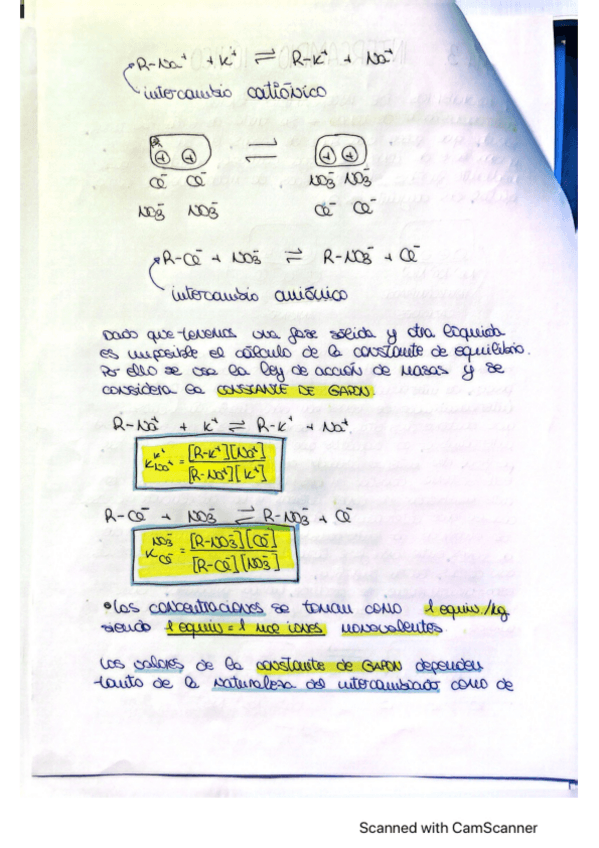 R-Na⁺ + K⁺ ⇌ R-K⁺ + Na⁺
intercambio catiónico
R
+ + ⇌ + +
Cl⁻ Cl⁻ NO₃⁻ NO₃⁻
NO₃⁻ NO₃⁻ Cl⁻ Cl⁻
R-Cl⁻ + NO₃⁻ ⇌ R-NO₃⁻ + Cl⁻
intercambio aniónico
Dado que tenemos una fase sólida y otra líquida
es imposible el cálculo de la constante de equilibrio.
Por ello se usa la ley de acción de masas y se
considera la CONSTANTE DE GAPON.
R-Na⁺ + K⁺ ⇌ R-K⁺ + Na⁺.
K K⁺ Na⁺ = [R-K⁺][Na⁺] / [R-Na⁺][K⁺]
R-Cl⁻ + NO₃⁻ ⇌ R-NO₃⁻ + Cl⁻
K NO₃⁻ Cl⁻ = [R-NO₃⁻][Cl⁻] / [R-Cl⁻][NO₃⁻]
• Las concentraciones se toman como 1 equiv/kg
siendo 1 equiv = 1 mol iones monovalentes
Los valores de la constante de GAPON dependen
tanto de la naturaleza del intercambiado como de
Scanned with CamScanner